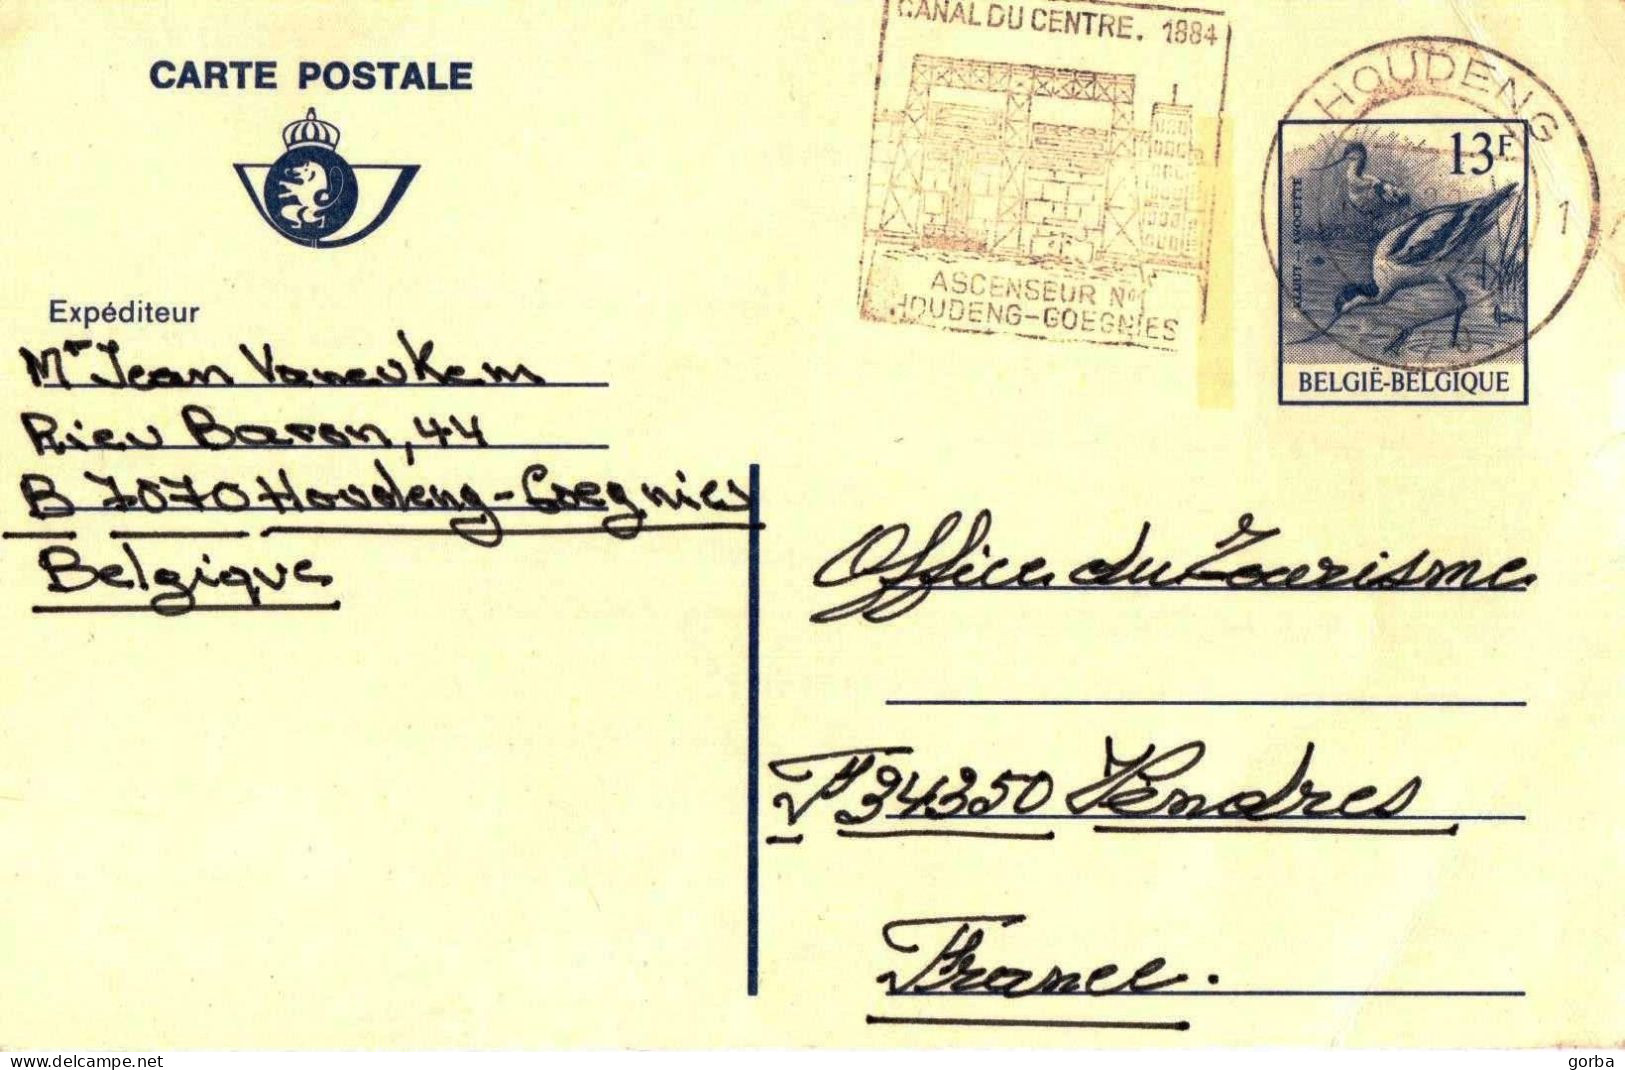 CANAL DU CENTRE. 1884
CARTE POSTALE
HOUDENG
1
13F
KLUUT - AVOCETTE
ASCENSEUR No 1
HOUDENG-GOEGNIES
BELGIË-BELGIQUE
Expéditeur
Mr Jean Vaneukem
Rieu Baron, 44
B 7070 Houdeng-Goegnies
Belgique
Office du Tourisme
F 34350 Vendres
France.
gorba